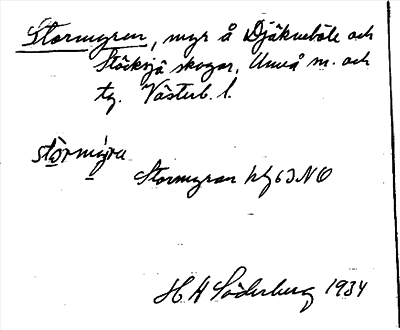 Stormyran, myr å Djäkneböle och
Stöcksjö skogar, Umeå m. och
tg. Västerb. l.
stòrmýra
Stormyran hgl 63 NO
H A Söderberg 1934